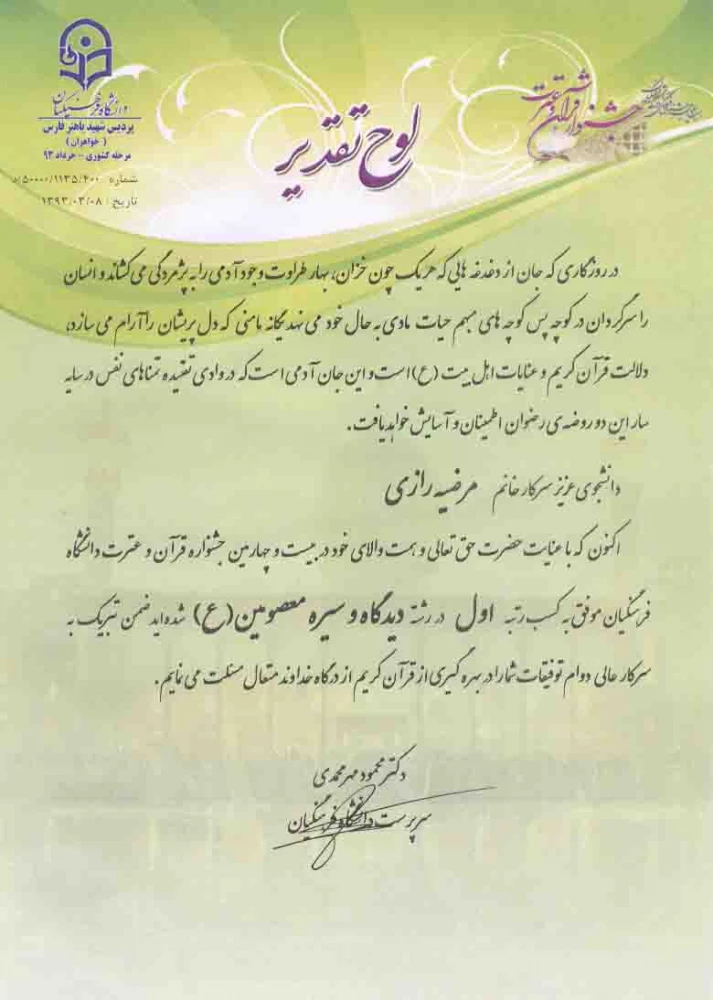 دانشگاه فرهنگیان
پردیس شهید باهنر فارس
( خواهران )
مرحله کشوری - خرداد ۹۳
شماره : ۵۰۰۰۰/۱۱۳۵/۴۰۰/د
تاریخ : ۱۳۹۳/۰۳/۰۸
جشنواره قرآن و عترت
لوح تقدیر
در روزگاری که جان از دغدغه هایی که هر یک چون خزان، بهار طراوت وجود آدمی را به پژمردگی می کشاند و انسان
را سرگردان در کوچه پس کوچه های مبهم حیات مادی به حال خود می نهد یگانه مامنی که دل پریشان را آرام می سازد،
دلالت قرآن کریم و عنایات اهل بیت (ع) است و این جان آدمی است که در وادی تفتیده تمناهای نفس در سایه
سار این دو روضه ی رضوان اطمینان و آسایش خواهد یافت.
دانشجوی عزیز سرکار خانم مرضیه رازی
اکنون که با عنایت حضرت حق تعالی و همت والای خود در بیست و چهارمین جشنواره قرآن و عترت دانشگاه
فرهنگیان موفق به کسب رتبه اول در رشته دیدگاه و سیره معصومین (ع) شده اید ضمن تبریک به
سرکار عالی دوام توفیقات شما را در بهره گیری از قرآن کریم از درگاه خداوند متعال مسئلت می نمایم.
دکتر محمود مهرمحمدی
سرپرست دانشگاه فرهنگیان